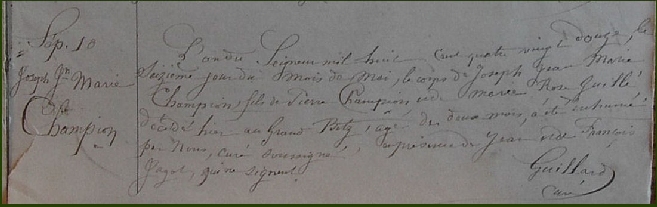 Sép. 10
Joseph Jn Marie
Champion
L'an du Seigneur mil huit cent quatre vingt douze, le
seizième jour du mois de Mai, le corps de Joseph Jean Marie
Champion, fils de Pierre Champion et de Marie Rose Guillé
décédé hier au Grand Betz, âgé de deux mois, a été inhumé
par Nous, curé soussigné, en présence de Jean et de François
qui ne signent.
Guillard
Curé